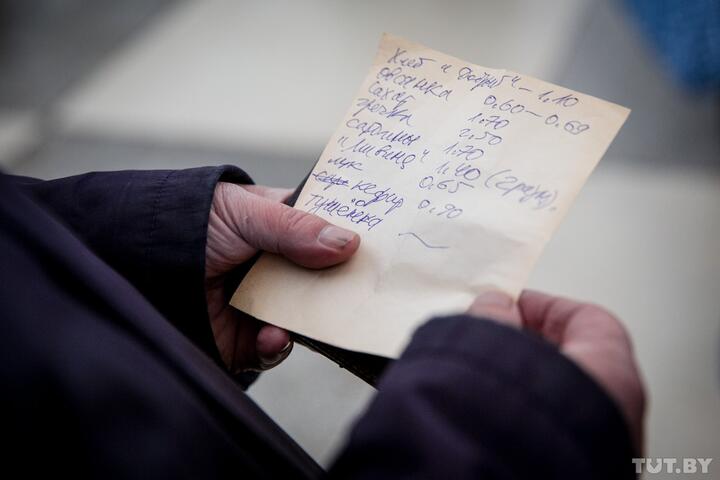 Хлеб "Добрый" - 1.10
овсянка 0.60 - 0.69
сахар 1.70
гречка 2.50
сардины 1.70
1.40
лук 0.65
кефир 0.90
тушёнка ~
TUT.BY